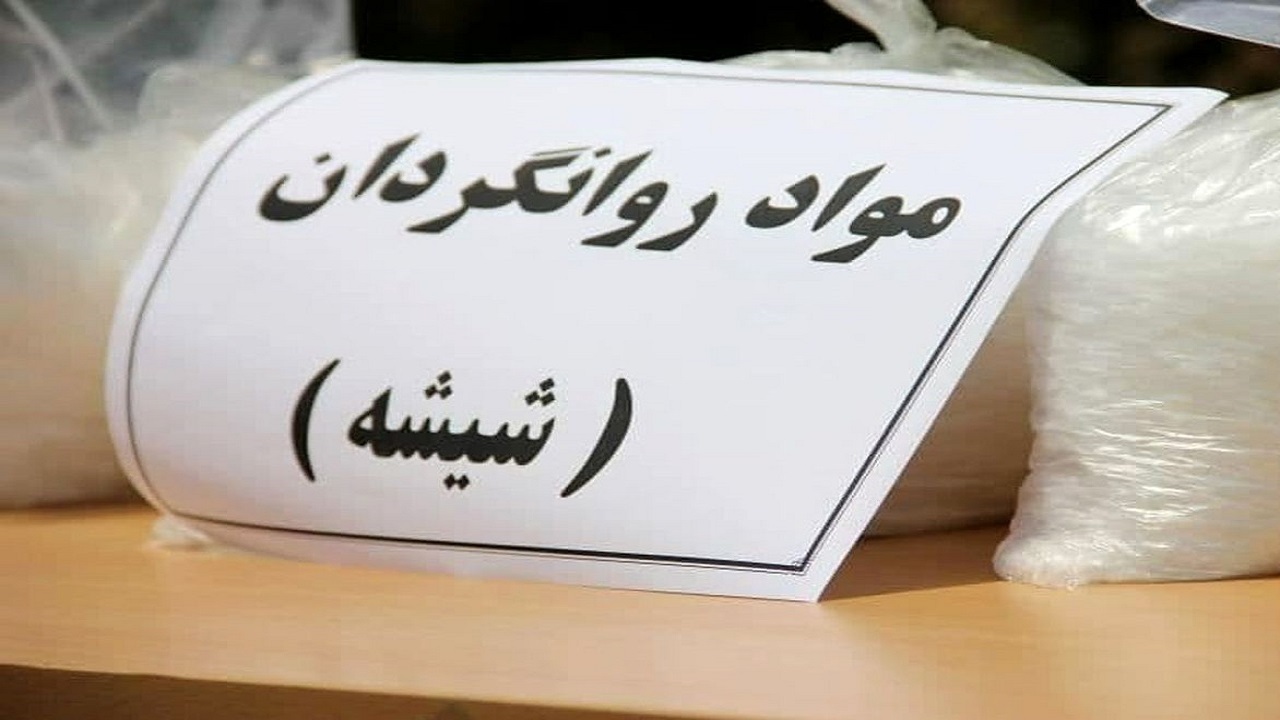 مواد روانگردان
( شیشه )